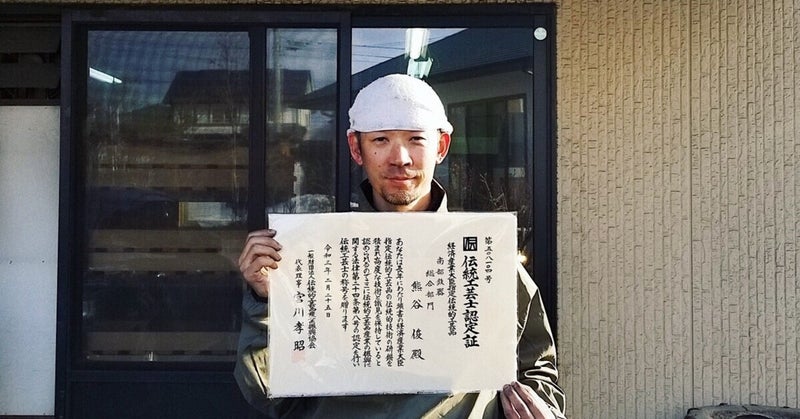 伝統工芸士認定証
経済産業大臣指定伝統的工芸品
南部鉄器
総合部門
熊谷 俊 殿
あなたは長年にわたり頭書の経済産業大臣
指定伝統的工芸品の伝統的技術の研鑽を
積まれ高度な技術と識見を保持していると
認められるのでここに伝統的工芸品産業の振興に
関する法律第二十四条第八号の認定を行い
伝統工芸士の称号を贈ります
令和三年二月二十五日
一般財団法人伝統的工芸品産業振興協会
代表理事 宮川孝昭